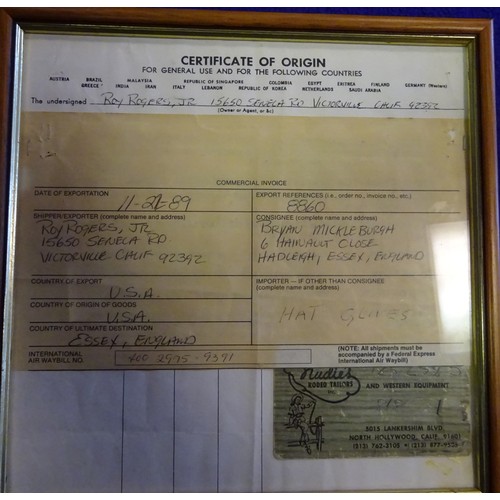 CERTIFICATE OF ORIGIN
FOR GENERAL USE AND FOR THE FOLLOWING COUNTRIES
AUSTRIA BRAZIL MALAYSIA REPUBLIC OF SINGAPORE COLOMBIA EGYPT ERITREA FINLAND GERMANY (Western)
GREECE INDIA IRAN ITALY LEBANON REPUBLIC OF KOREA NETHERLANDS SAUDI ARABIA
The undersigned ROY ROGERS, JR 15650 SENECA RD VICTORVILLE CALIF 92392
(Owner or Agent, or &c)
COMMERCIAL INVOICE
DATE OF EXPORTATION
11-21-89
EXPORT REFERENCES (i.e., order no., invoice no., etc.)
8860
SHIPPER/EXPORTER (complete name and address)
ROY ROGERS, JR
15650 SENECA RD
VICTORVILLE CALIF 92392
CONSIGNEE (complete name and address)
BRYAN MICKLEBURGH
6 HAINAULT CLOSE
HADLEIGH, ESSEX, ENGLAND
COUNTRY OF EXPORT
U.S.A.
COUNTRY OF ORIGIN OF GOODS
U.S.A.
COUNTRY OF ULTIMATE DESTINATION
ESSEX, ENGLAND
IMPORTER — IF OTHER THAN CONSIGNEE
(complete name and address)
HAT GLOVES
INTERNATIONAL
AIR WAYBILL NO.
400 2975-9371
(NOTE: All shipments must be
accompanied by a Federal Express
International Air Waybill)
Nudie's
RODEO TAILORS
AND WESTERN EQUIPMENT
5015 LANKERSHIM BLVD.
NORTH HOLLYWOOD, CALIF. 91601
(213) 762-3105 • (213) 877-9505